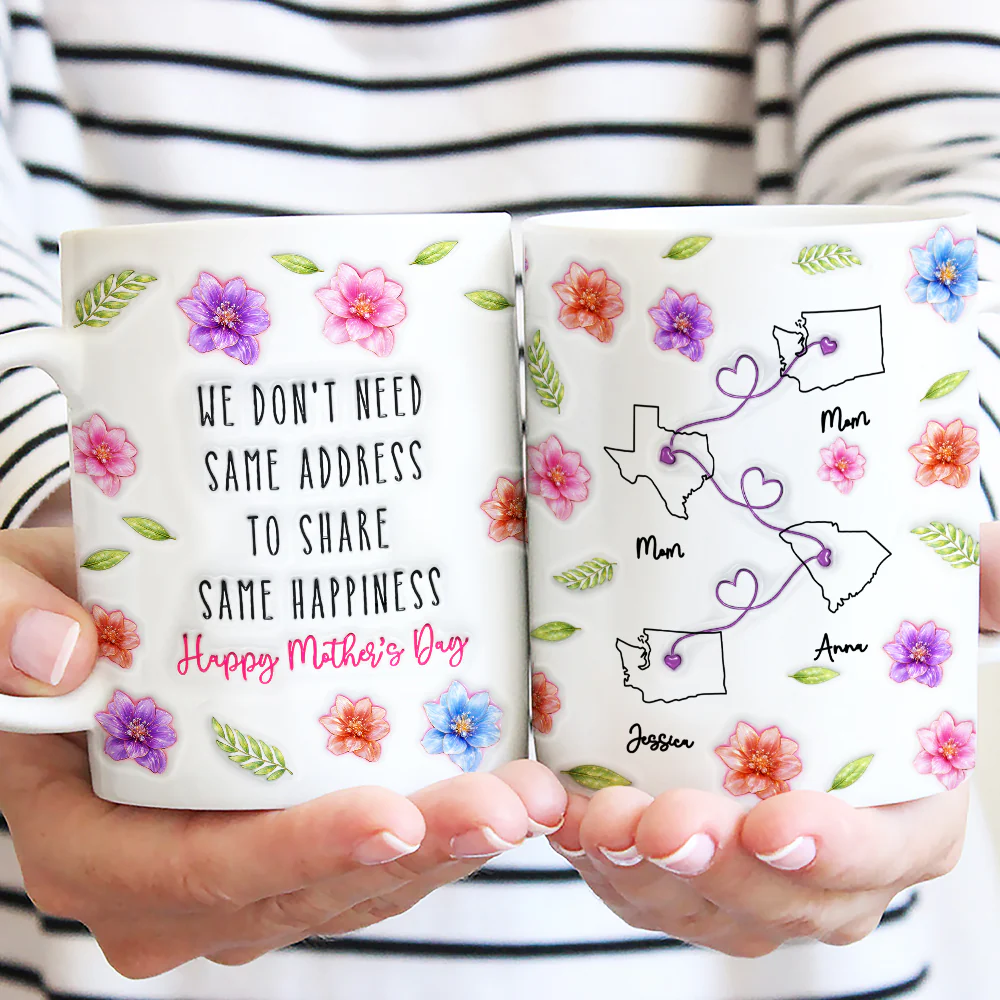 WE DON'T NEED
SAME ADDRESS
TO SHARE
SAME HAPPINESS
Happy Mother's Day
Mom
Mom
Anna
Jessica